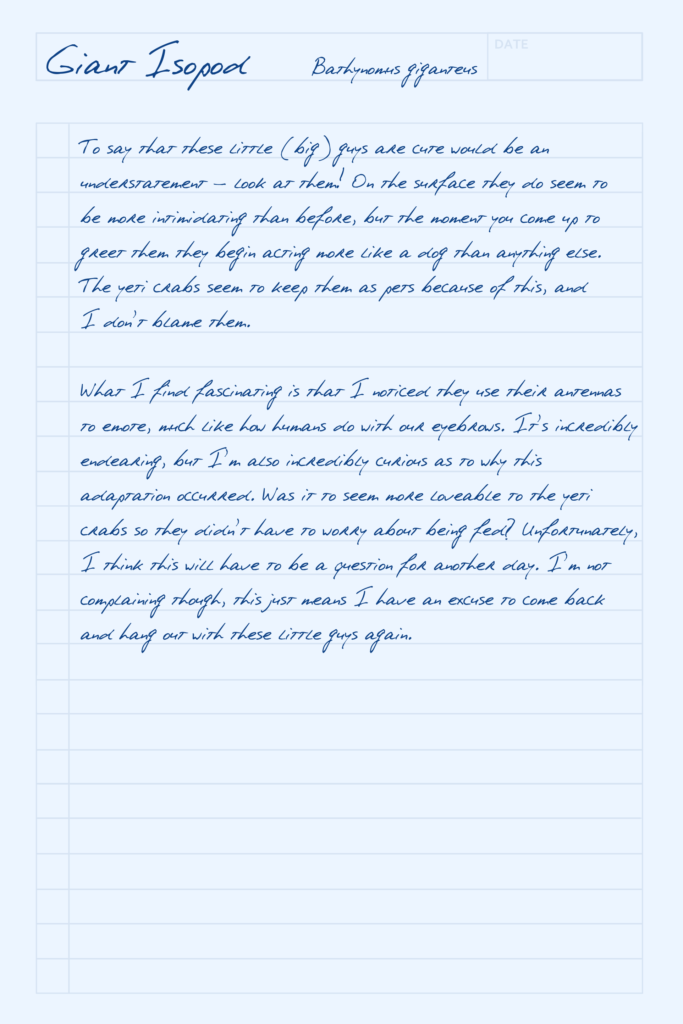 Giant Isopod
Bathynomus giganteus
DATE
To say that these little (big) guys are cute would be an
understatement – look at them! On the surface they do seem to
be more intimidating than before, but the moment you come up to
greet them they begin acting more like a dog than anything else.
The yeti crabs seem to keep them as pets because of this, and
I don't blame them.
What I find fascinating is that I noticed they use their antennas
to emote, much like how humans do with our eyebrows. It's incredibly
endearing, but I'm also incredibly curious as to why this
adaptation occurred. Was it to seem more loveable to the yeti
crabs so they didn't have to worry about being fed? Unfortunately,
I think this will have to be a question for another day. I'm not
complaining though, this just means I have an excuse to come back
and hang out with these little guys again.